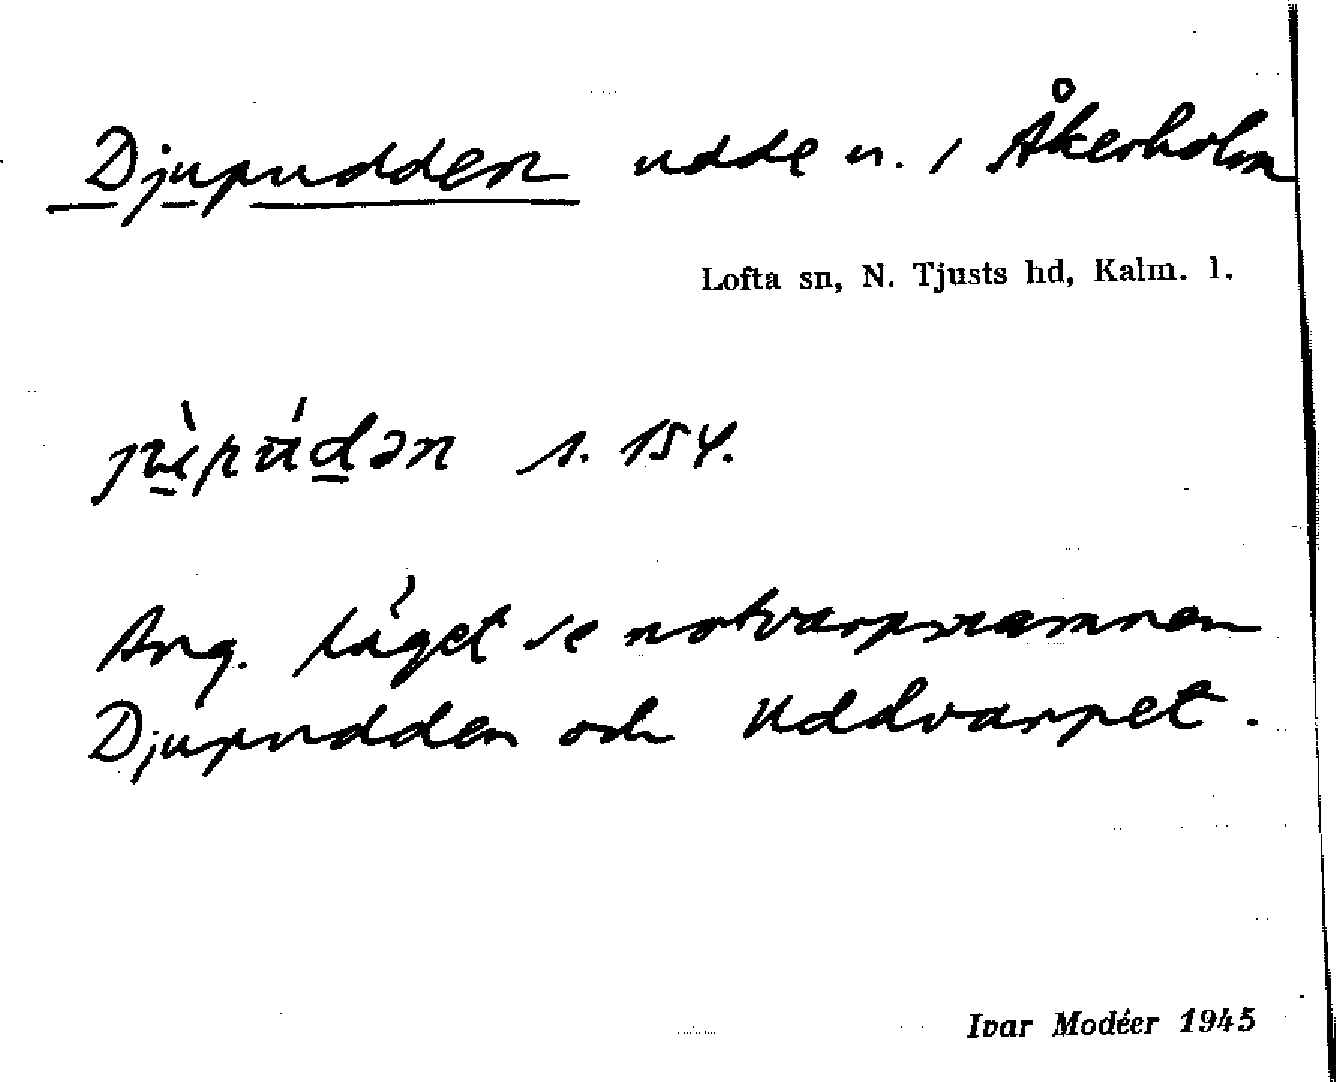 Djupudden udde n. / Åkerholm
Lofta sn, N. Tjusts hd, Kalm. l.
s. 154.
Ang. läget se notvarpsnamnen
Djupudden och Uddvarpet.
Ivar Modéer 1945